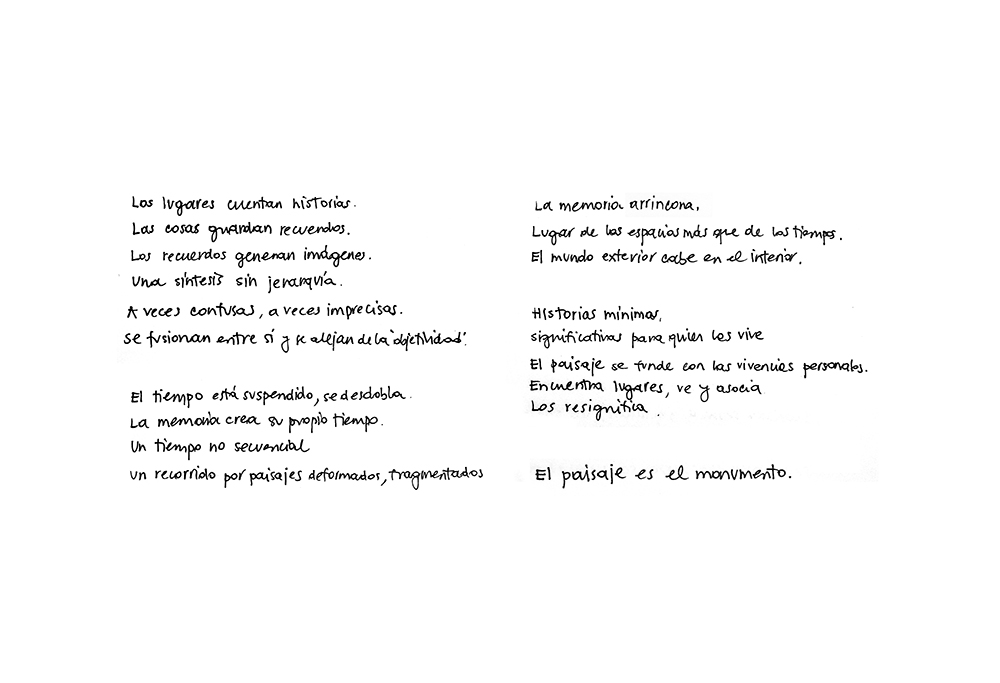 Los lugares cuentan historias.
Las cosas guardan recuerdos.
Los recuerdos generan imágenes.
Una síntesis sin jerarquía.
A veces confusas, a veces imprecisas.
Se fusionan entre sí y se alejan de la "objetividad".
El tiempo está suspendido, se desdobla.
La memoria crea su propio tiempo.
Un tiempo no secuencial
un recorrido por paisajes deformados, fragmentados
La memoria arrincona,
Lugar de los espacios más que de los tiempos.
El mundo exterior cabe en el interior.
Historias mínimas,
significativas para quien las vive
El paisaje se funde con las vivencias personales.
Encuentra lugares, ve y asocia
Los resignifica.
El paisaje es el monumento.